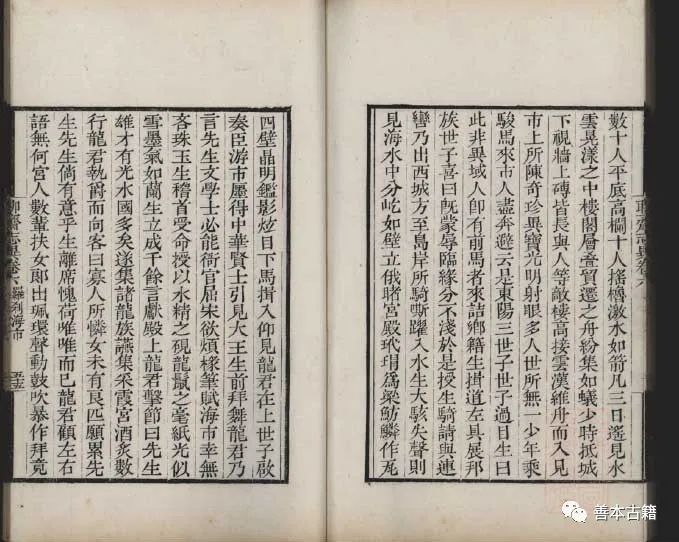 數十人平底高欄十人搖櫓激水如箭凡三日遙見水
雲晃漾之中樓閣層疊貿遷之舟紛集如蟻少時抵城
下視牆上磚皆長與人等敵樓高接雲漢維舟而入見
市上所陳奇珍異寶光明射眼多人世所無一少年乘
駿馬來市人盡奔避云是東陽三世子世子過目生曰
此非異域人卽有前馬者來詰鄉籍生揖道左具展邦
族世子喜曰旣蒙辱臨緣分不淺於是授生騎請與連
轡乃出西城方至島岸所騎嘶躍入水生大駭失聲則
見海水中分屹如壁立俄睹宮殿玳瑁爲梁魴鱗作瓦
四壁晶明鑑影炫目下馬揖入仰見龍君在上世子啟
奏臣游市廛得中華賢士引見大王生前拜舞龍君乃
言先生文學士必能衙官屈宋欲煩椽筆賦海市幸無
吝珠玉生稽首受命授以水精之硯龍鬣之毫紙光似
雪墨氣如蘭生立成千餘言獻殿上龍君擊節曰先生
雄才有光水國多矣遂集諸龍族讌集采霞宮酒炙數
行龍君執爵而向客曰寡人所憐女未有良匹願累先
生先生倘有意乎生離席愧荷唯唯而已龍君顧左右
語無何宮人數輩扶女郎出珮環聲動鼓吹暴作拜竟
聊齋志異卷六 羅刹海市
善本古籍